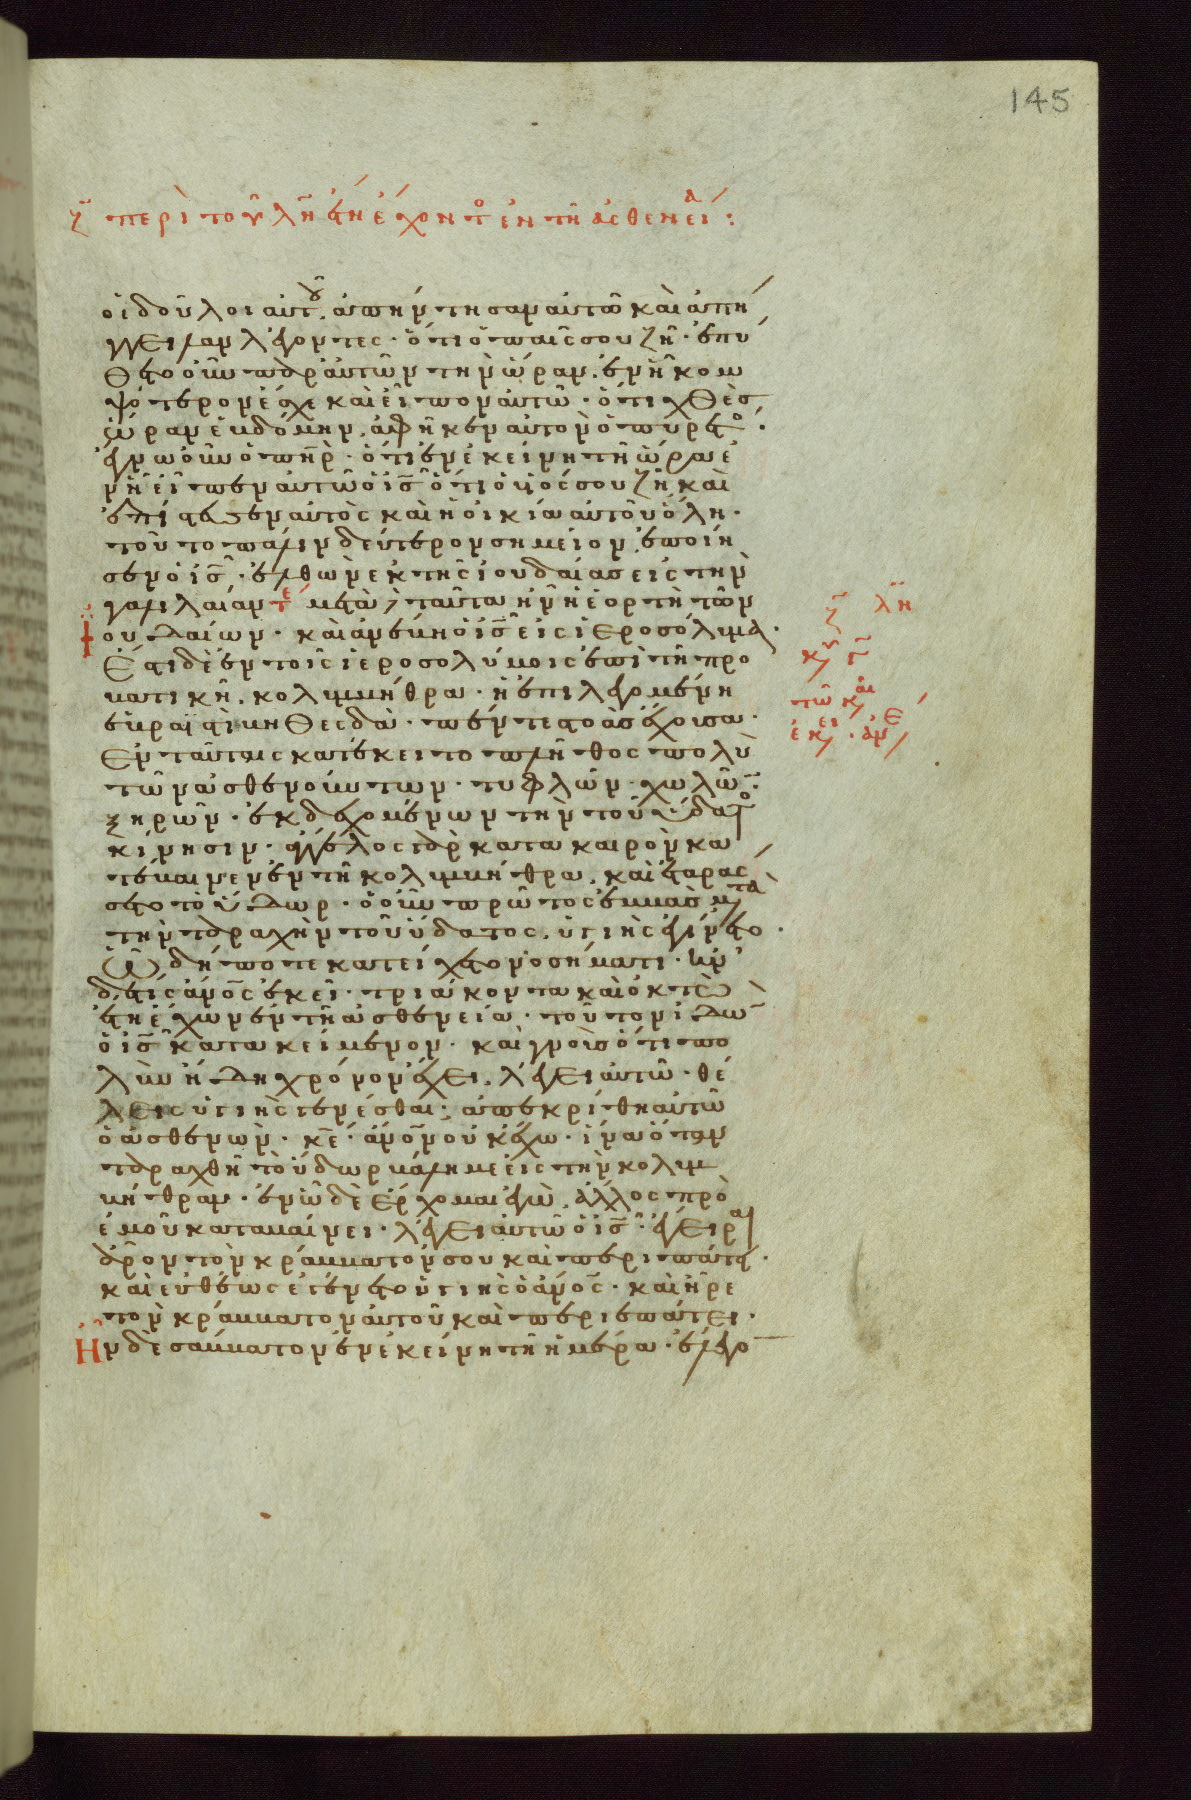 145
ζ περὶ τοῦ λη ἔτη ἔχοντο ἐν τῆ ἀσθενεία :
οἱ δοῦλοι αὐτοῦ. ἀπήντησαν αὐτῶ καὶ ἀπή
γγειλαν λέγοντες· ὅτι ὁ παῖς σου ζῆ· ἐπύ
θετο οὖν παρ αὐτῶν τὴν ὥραν. ἐν ἧ κομ
ψότερον ἔσχε καὶ εἶπον αὐτῶ· ὅτι χθὲς
ὥραν ἑβδόμην. ἀφῆκεν αὐτὸν ὁ πυρετό·
ἔγνω οὖν ὁ πηρ· ὅτι ἐν ἐκείνη τῆ ὥρα ἐ
ν ἧ εἶπεν αὐτῶ ὁ ις ὅτι ὁ υἱός σου ζῆ καὶ
ἐπίστευσεν αὐτὸς καὶ ἡ οἰκία αὐτοῦ ὅλη·
τοῦτο πάλιν δεύτερον σημεῖον ἐποίη
σεν ὁ ις· ἐλθὼν ἐκ τῆς ἰουδαίας εἰς τὴν
γαλιλαίαν τε μετὰ ταῦτα ἦν ἡ ἑορτὴ τῶν
ἰουδαίων· καὶ ἀνέβη ὁ ις εἰς ἱεροσόλυμα·
Ἔστι δὲ ἐν τοῖς ἱεροσολύμοις ἐπὶ τῆ προ
βατικῆ. κολυμβήθρα· ἡ ἐπιλεγομένη
ἑβραϊστὶ βηθεσδὰ· πέντε στοὰς ἔχουσα·
Ἐν ταύταις κατέκειτο πλῆθος πολὺ
τῶν ἀσθενούντων· τυφλῶν· χωλῶ·
ξηρῶν· ἐκδεχομένων τὴν τοῦ ὕδατο
κίνησιν· ἄγγελος γὰρ κατὰ καιρὸν κα
τέβαινεν ἐν τῆ κολυμβήθρα. καὶ ἐτάρας
σετο τὸ ὕδωρ· ὁ οὖν πρῶτος ἐμβὰς μετὰ
τὴν ταραχὴν τοῦ ὕδατος. ὑγιὴς ἐγίνετο·
Ὧ δήποτε κατείχετο νοσήματι· ἦν
δέ τις ἄνος ἐκεῖ· τριάκοντα καὶ ὀκτὼ
ἔτη ἔχων ἐν τῆ ἀσθενεία· τοῦτον ἰδὼ
ὁ ις κατακείμενον· καὶ γνοὺς ὅτι πο
λὺν ἤδη χρόνον ἔχει. λέγει αὐτῶ· θέ
λεις ὑγιὴς γενέσθαι· ἀπεκρίθη αὐτῶ
ὁ ἀσθενῶν· κε· ἄνον οὐκ ἔχω· ἵνα ὅταν
ταραχθῆ τὸ ὕδωρ βάλη με εἰς τὴν κολυμ
βήθραν· ἐν ὧ δὲ ἔρχομαι ἐγὼ. ἄλλος πρὸ
ἐμοῦ καταβαίνει· λέγει αὐτῶ ὁ ις· ἔγειραι
ἆρον τὸν κράββατόν σου καὶ περιπάτει·
καὶ εὐθέως ἐγένετο ὑγιὴς ὁ ἄνος· καὶ ἦρε
τὸν κράββατον αὐτοῦ καὶ περιεπάτει·
Ἦν δὲ σάββατον ἐν ἐκείνη τῆ ἡμέρα· ἔλεγο